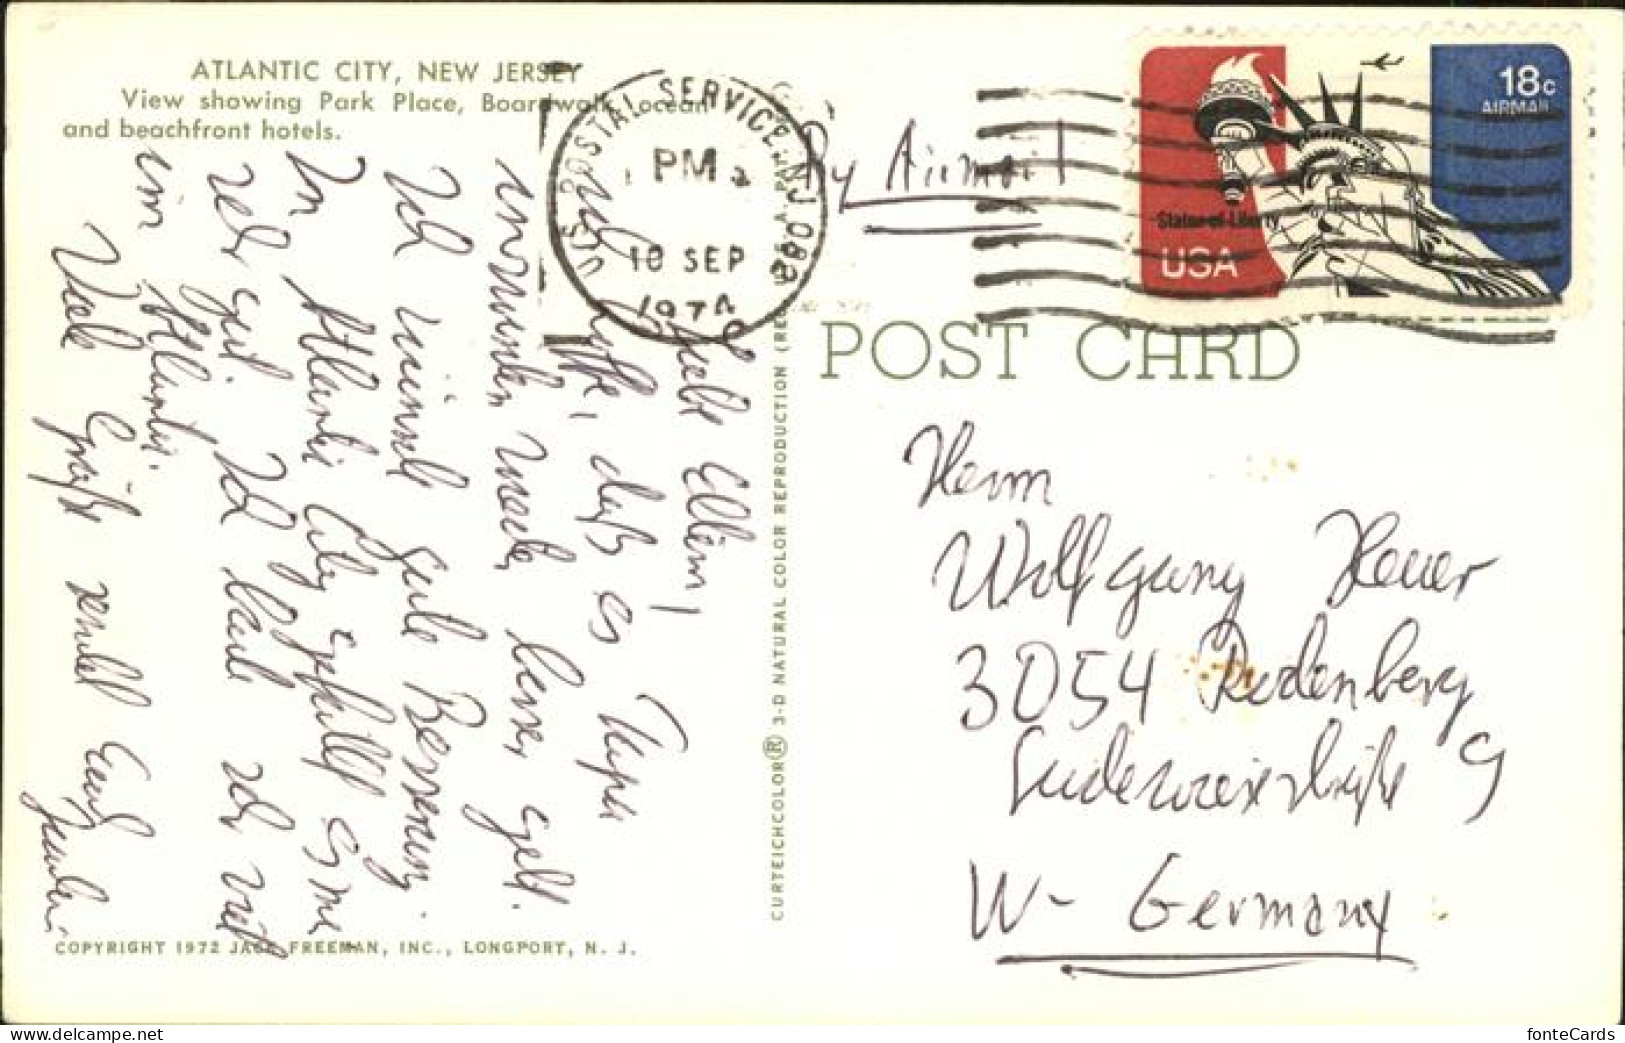 ATLANTIC CITY, NEW JERSEY
View showing Park Place, Boardwalk, ocean
and beachfront hotels.
US POSTAL SERVICE NJ 082
PM
18 SEP
1974
By Airmail
18c
AIRMAIL
Statue of Liberty
USA
POST CARD
Herrn
Wolfgang Heuer
3054 Rodenberg
9
W-Germany
Liebe Eltern,
hoffe, daß es Papa
inzwischen wieder besser geht.
Ich wünsche gute Besserung.
In Atlantic City gefällt es mir
sehr gut. Ich bade sehr viel
im Atlantic.
Viele Grüße sendet Euch
CURTEICHCOLOR® 3-D NATURAL COLOR REPRODUCTION (REG. U.S.A. PAT.
COPYRIGHT 1972 JACK FREEMAN, INC., LONGPORT, N. J.
www.delcampe.net
fonteCards